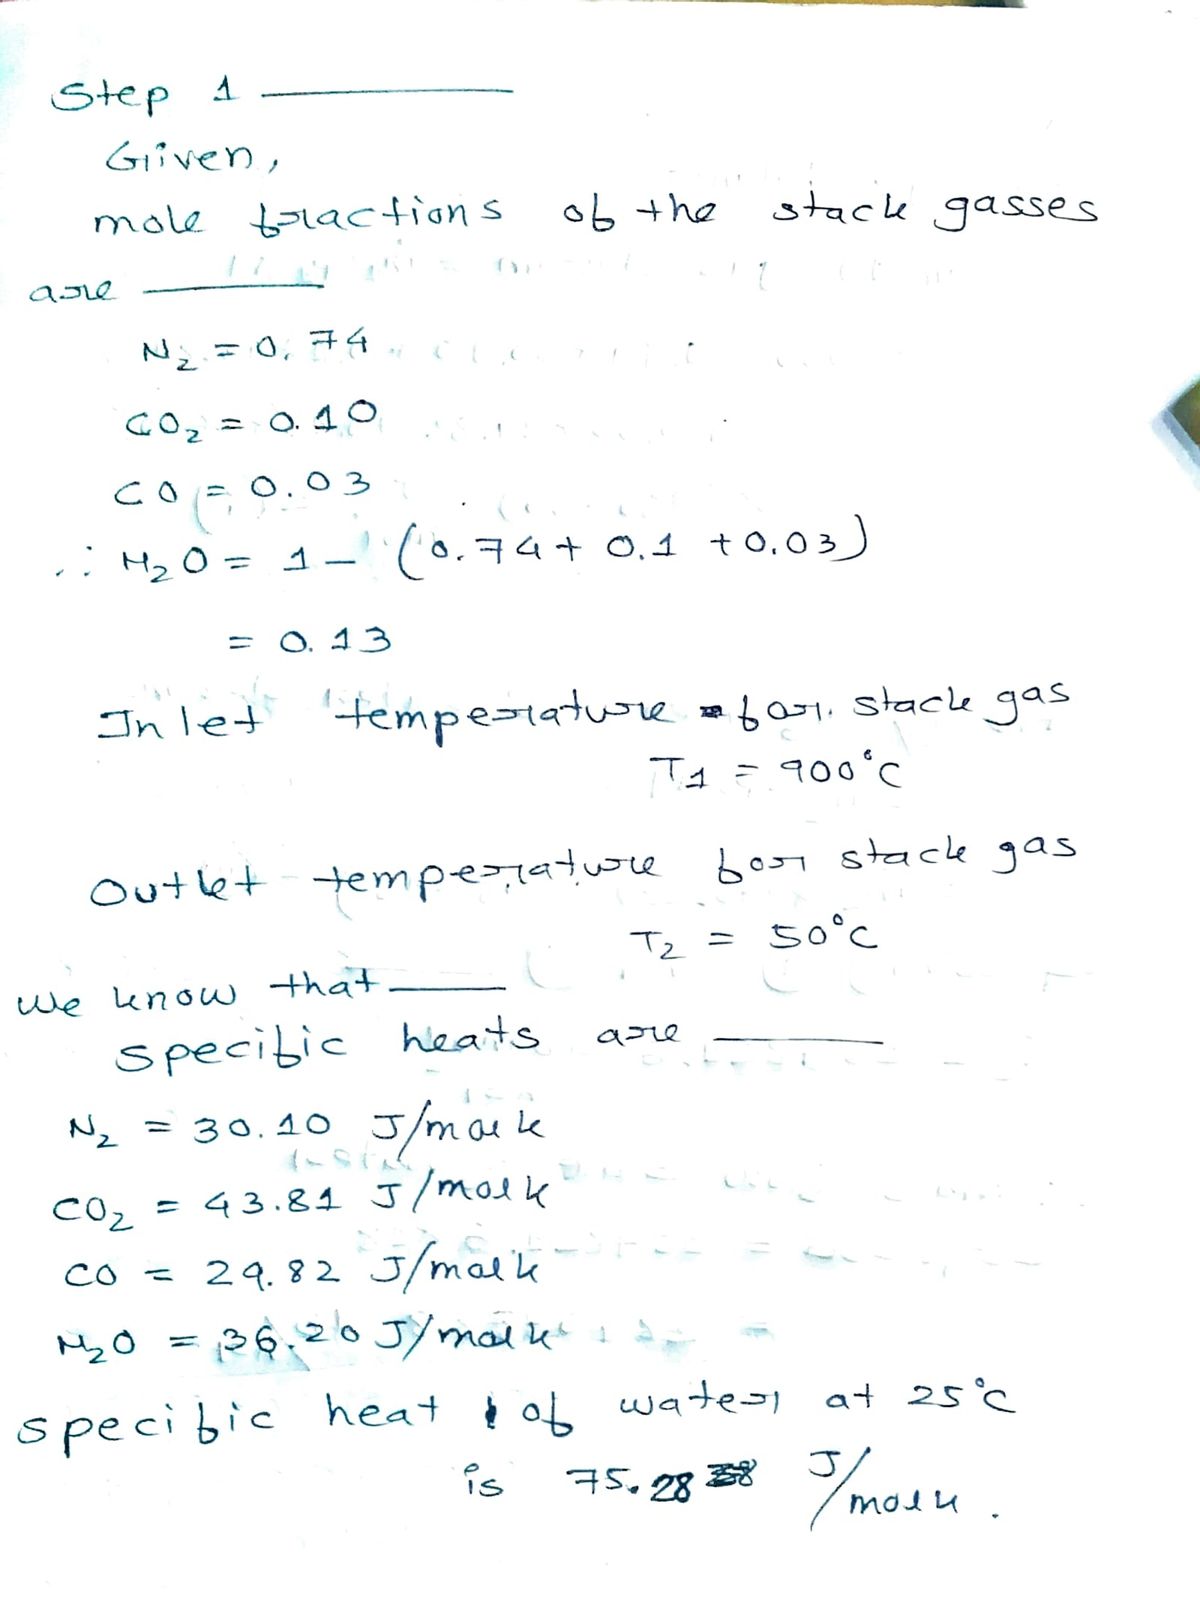 Step 1
Given,
mole fractions of the stack gasses
are
N₂ = 0.74
CO₂ = 0.10
CO = 0.03
∴ H₂O = 1 - (0.74 + 0.1 + 0.03)
= 0.13
Inlet temperature for stack gas
T₁ = 900°C
Outlet temperature for stack gas
T₂ = 50°C
We know that
specific heats are
N₂ = 30.10 J/mol k
CO₂ = 43.81 J/mol k
CO = 29.82 J/mol k
H₂O = 36.20 J/mol k
specific heat of water at 25°C
is 75.28 J/mol k.